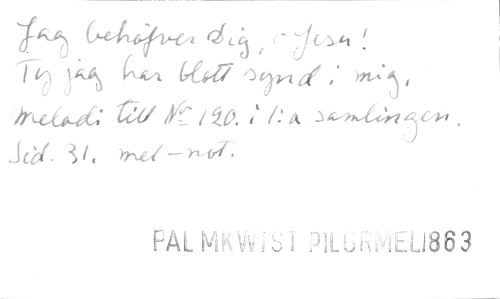 Jag behöfver Dig, o Jesu!
Ty jag har blott synd i mig,
Melodi till No 120. i 1:a samlingen.
Sid. 31. mel-not.
PALMKWIST PILGRMEL1863